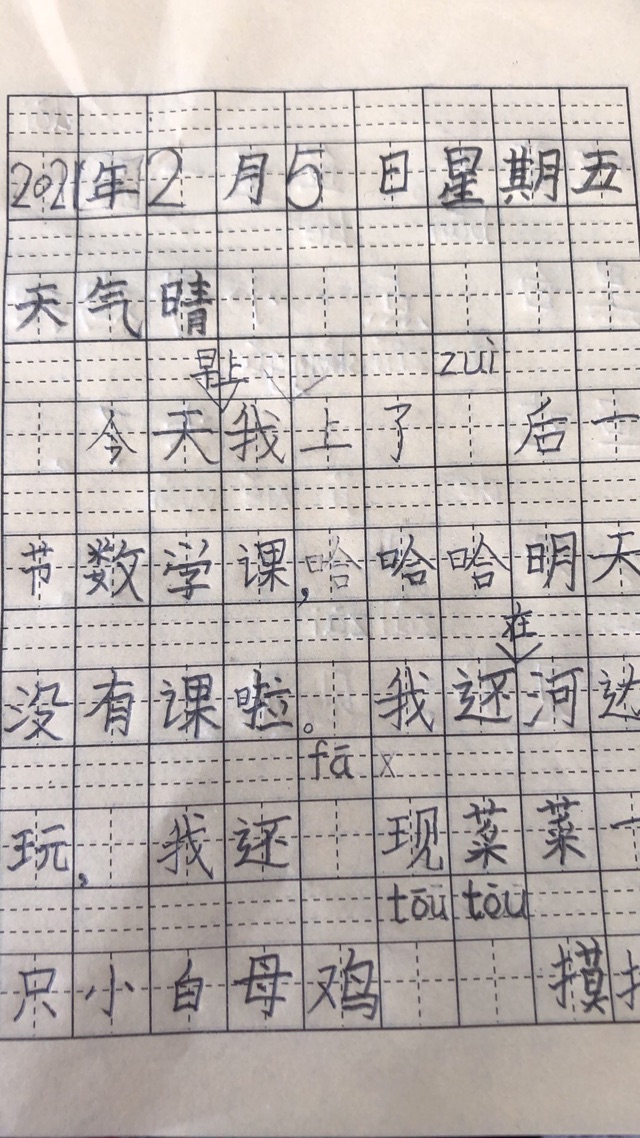 2021年2月5日星期五
天气晴
早上 zuì
今天我上了 后一
节数学课,哈哈哈明天
在
没有课啦。我还河边
fā x
玩,我还 现菜菜一
tōu tōu
只小自母鸡 摸